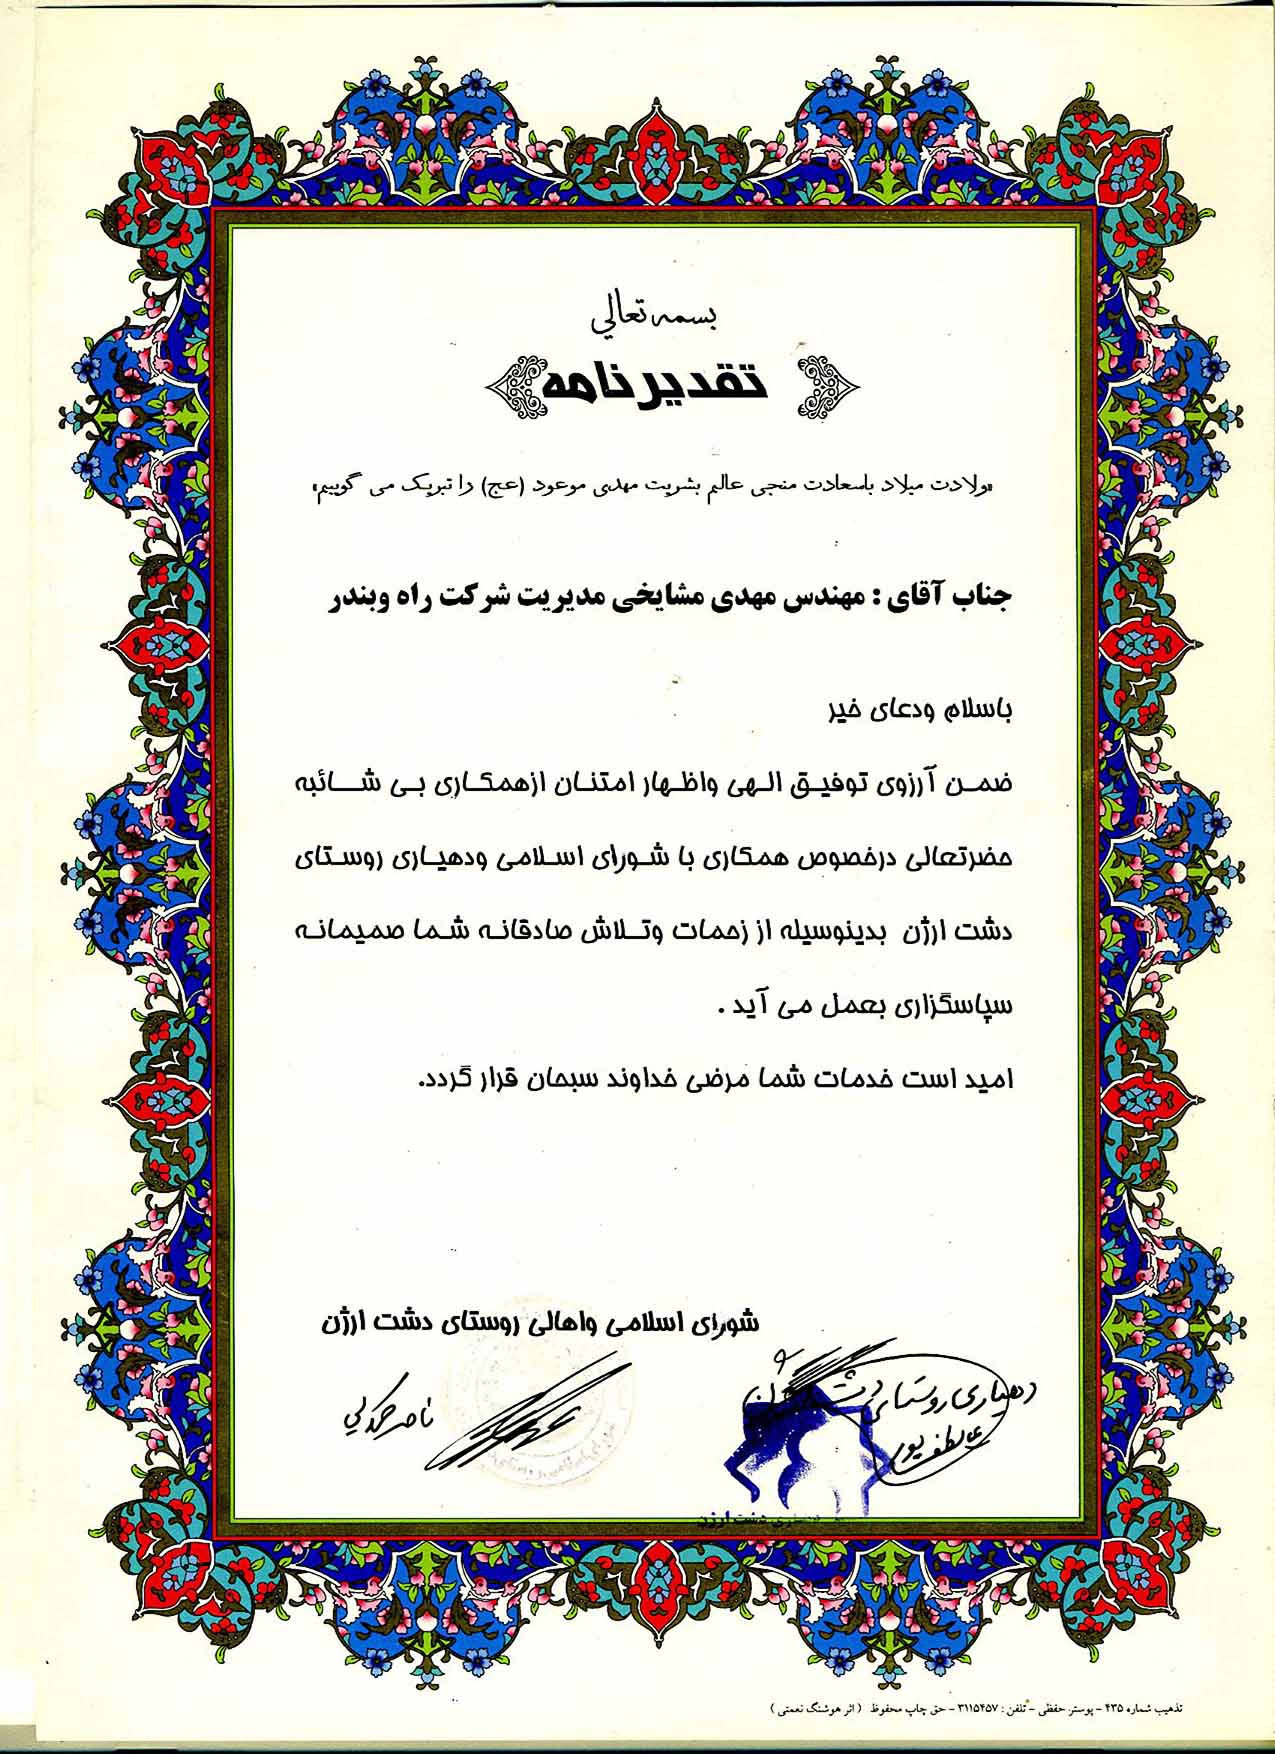 بسمه تعالي
تقدیرنامه
«ولادت میلاد باسعادت منجی عالم بشریت مهدی موعود (عج) را تبریک می گوییم»
جناب آقای : مهندس مهدی مشایخی مدیریت شرکت راه وبندر
باسلام ودعای خیر
ضمن آرزوی توفیق الهی واظهار امتنان ازهمکاری بی شائبه
حضرتعالی درخصوص همکاری با شورای اسلامی ودهیاری روستای
دشت ارژن بدینوسیله از زحمات وتلاش صادقانه شما صمیمانه
سپاسگزاری بعمل می آید .
امید است خدمات شما مرضی خداوند سبحان قرار گردد.
شورای اسلامی واهالی روستای دشت ارژن
دهیاری روستای دشت ارژن
لطف پور
ناصر
دهیاری دشت ارژن
تذهیب شماره ۴۳۵ - پوستر حفظی - تلفن : ۳۱۱۵۴۵۷ - حق چاپ محفوظ ( اثر هوشنگ نعمتی )